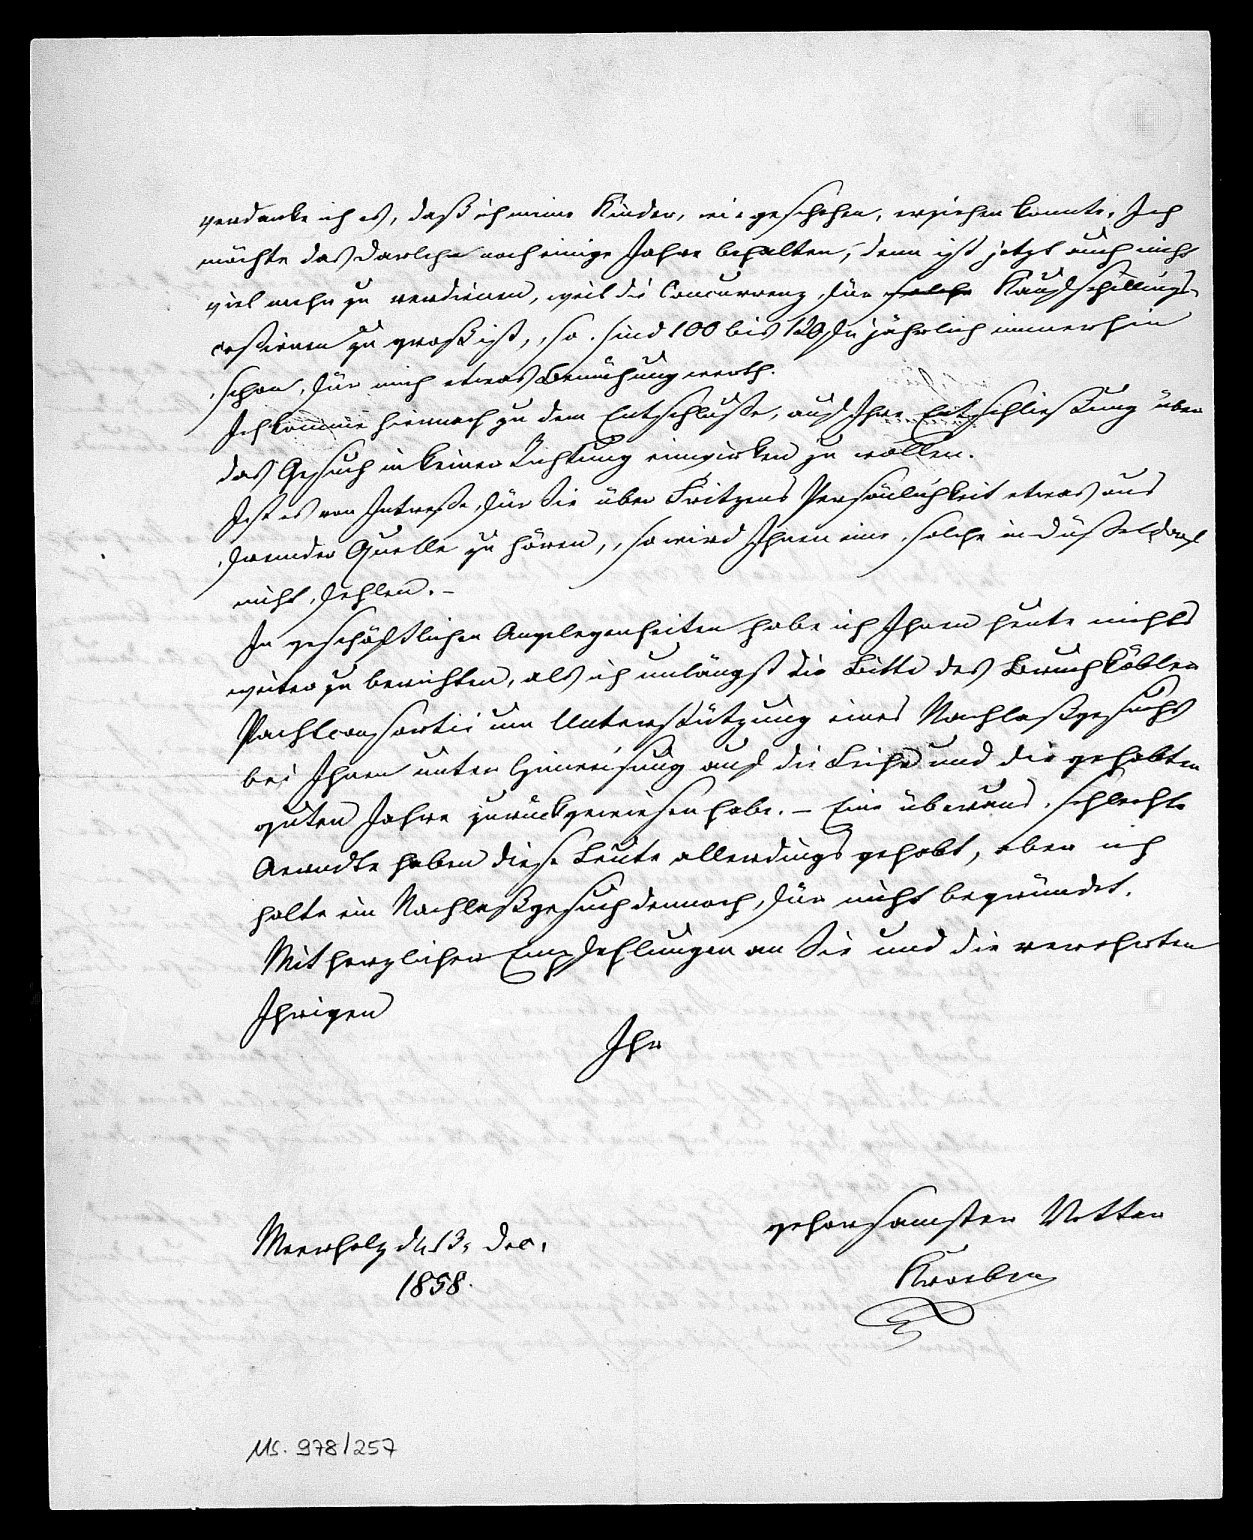 verdanke ich es, daß ich meine Kinder, wie geschehen, erziehen konnte. Ich
möchte das Darlehn noch einige Jahre behalten, denn ist jetzt auch nicht
viel mehr zu verdienen, weil die Concurrenz für solche Kaufschillings-
cessionen zu groß ist, so sind 100 bis 120 fl jährlich immerhin
schon für mich etwas Bemühung werth.
Ich komme hiernach zu dem Entschlusse, auf Ihre Entschließung über
das Gesuch in keiner Richtung einwirken zu wollen.
Ist es von Intresse für Sie über Fritzens Persönlichkeit etwas aus
fremder Quelle zu hören, so wird Ihnen eine solche in Düsseldorf
nicht fehlen. -
In geschäftlichen Angelegenheiten habe ich Ihnen heute nichts
weiter zu berichten, als ich unlängst die Bitte des Bruchköbler
Pachtconsortii um Unterstützung eines Nachlaßgesuchs
bei Ihnen unter Hinweisung auf die Leihe und die gehabten
guten Jahre zurückgewiesen habe. - Eine überaus schlechte
Aerndte haben diese Leute allerdings gehabt, aber ich
halte ein Nachlaßgesuch dennoch für nicht begründet.
Mit herzlichen Empfehlungen an Sie und die verehrten
Ihrigen
Ihr
gehorsamster Vetter
Meerholz d. 13. Dec.
1858.
Kroeber
Ms. 978/257